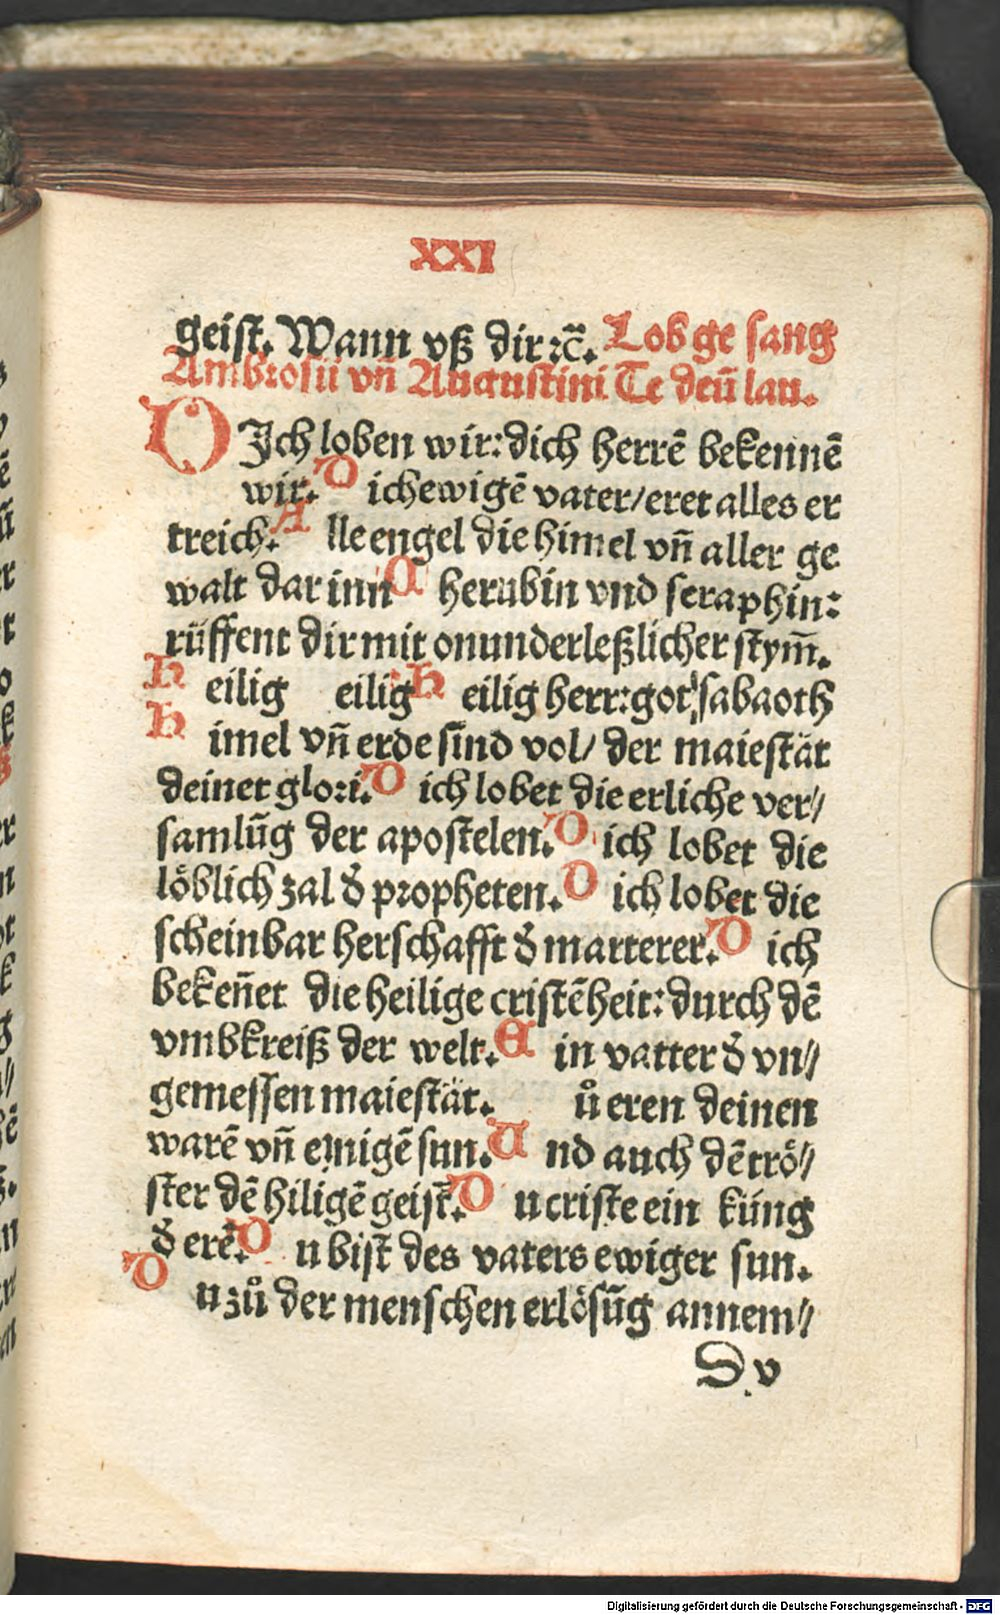 XXI
geist. Wann vß dir ꝛc̄. Lob ge sang
Ambrosii vn̄ Augustini Te deū lau.
DIch loben wir: dich herrē bekennē
wir. D ich ewigē vater/ eret alles er
treich. A lle engel die himel vn̄ aller ge
walt dar inn C herubin vnd seraphin:
rüffent dir mit onunderleßlicher stym̄.
H eilig eilig H eilig herr: got sabaoth
H imel vn̄ erde sind vol/ der maiestät
deiner glori. D ich lobet die erliche ver//
samlūg der apostelen. D ich lobet die
löblich zal đ propheten. D ich lobet die
scheinbar herschafft đ marterer. D ich
beken̄et die heilige cristēheit: durch dē
vmbkreiß der welt. E in vatter đ vn//
gemessen maiestät. ů eren deinen
warē vn̄ einigē sun. U nd auch dē trö//
ster dē hiligē geist. D u criste ein küng
đ erē. D u bist des vaters ewiger sun.
D u zů der menschen erlösūg annem//
D v
Digitalisierung gefördert durch die Deutsche Forschungsgemeinschaft - DFG